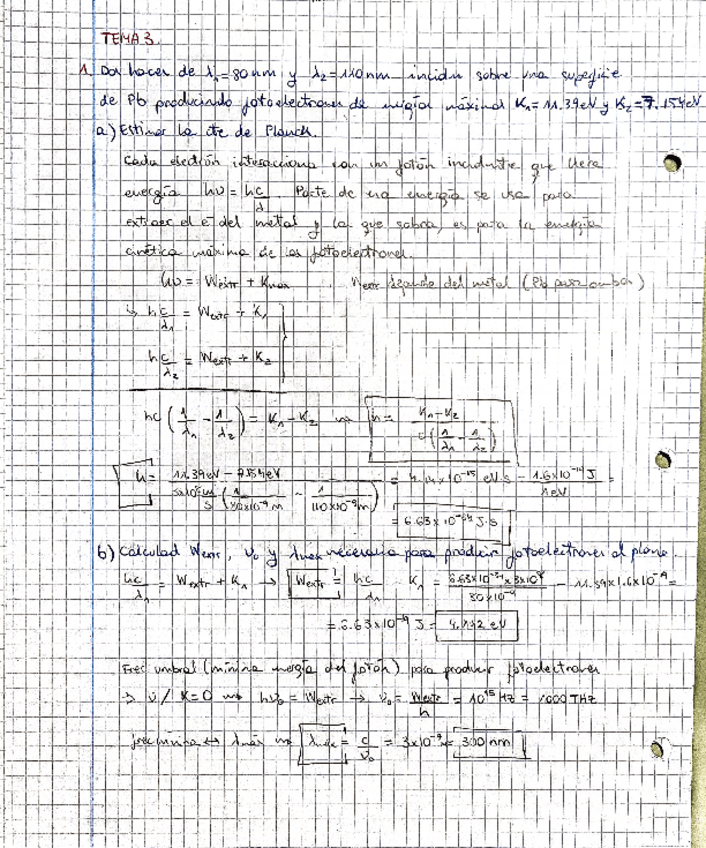 TEMA 3.
1. Dos haces de λ₁=80nm y λ₂=110nm inciden sobre una superficie
de Pb produciendo fotoelectrones de energía máxima K₁=11.39eV y K₂=7.154eV
a) Estimar la cte de Planck.
Cada electrón interacciona con un fotón incidente que lleva
energía hν = hc/λ. Parte de esa energía se usa para
extraer el e⁻ del metal y la que sobra, es para la energía
cinética máxima de los fotoelectrones.
hν = Wextr + Kmax Wextr depende del metal (Pb para ambos)
↳ hc/λ₁ = Wextr + K₁
hc/λ₂ = Wextr + K₂
hc (1/λ₁ - 1/λ₂) = K₁ - K₂ → h = (K₁-K₂)/(c(1/λ₁ - 1/λ₂))
h = (11.39eV - 7.154eV)/(3x10⁸ m/s (1/(80x10⁻⁹m) - 1/(110x10⁻⁹m))) = 4.14x10⁻¹⁵ eV·s · (1.6x10⁻¹⁹ J)/(1eV) =
= 6.63x10⁻³⁴ J·s
b) Calculad Wextr, ν₀ y λmax necesaria para producir fotoelectrones al plomo.
hc/λ₁ = Wextr + K₁ → Wextr = hc/λ₁ - K₁ = (6.63x10⁻³⁴ x 3x10⁸)/(80x10⁻⁹) - 11.39x1.6x10⁻¹⁹ =
= 6.63x10⁻¹⁹ J = 4.142 eV
Frec umbral (mínima energía del fotón) para producir fotoelectrones
→ ν / K=0 → hν₀ = Wextr → ν₀ = Wextr/h = 10¹⁵ Hz = 1000 THz
frec mínima ↔ λmáx → λmáx = c/ν₀ = 3x10⁻⁷ = 300 nm